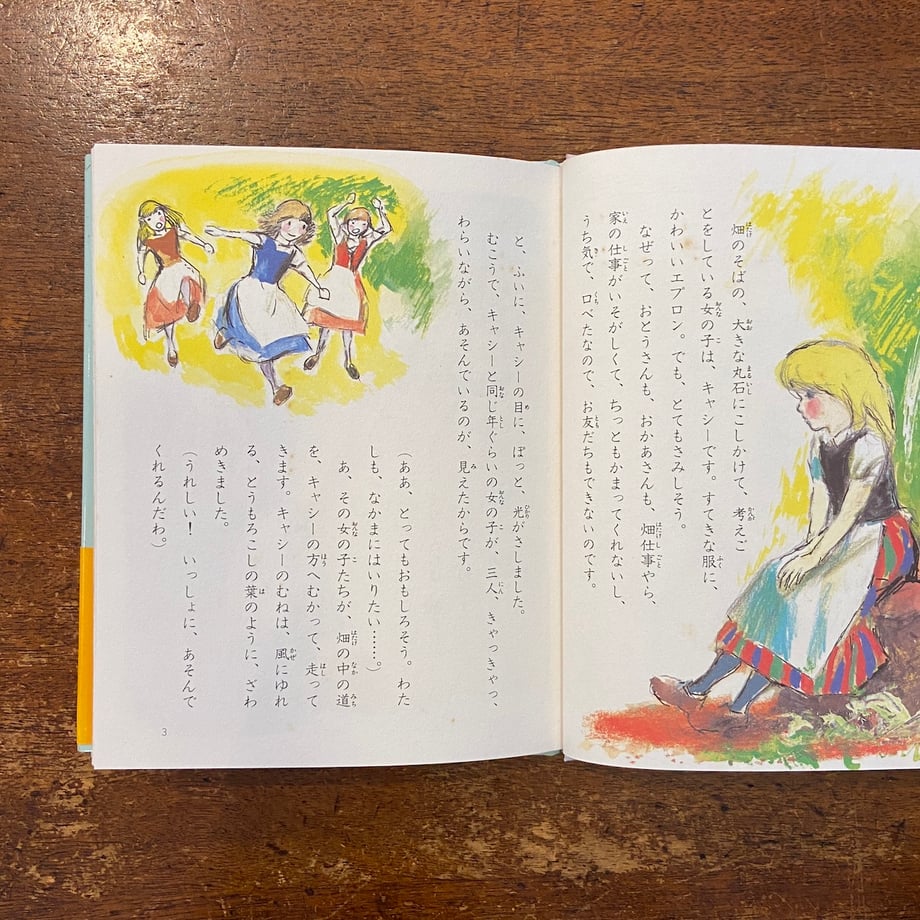 畑のそばの、大きな丸石にこしかけて、考えご
とをしている女の子は、キャシーです。すてきな服に、
かわいいエプロン。でも、とてもさみしそう。
なぜって、おとうさんも、おかあさんも、畑仕事やら、
家の仕事がいそがしくて、ちっともかまってくれないし、
うち気で、口べたなので、お友だちもできないのです。
と、ふいに、キャシーの目に、ぽっと、光がさしました。
むこうで、キャシーと同じ年ぐらいの女の子が、三人、きゃっきゃっ、
わらいながら、あそんでいるのが、見えたからです。
（ああ、とってもおもしろそう。わた
しも、なかまにはいりたい……。）
あ、その女の子たちが、畑の中の道
を、キャシーの方へむかって、走って
きます。キャシーのむねは、風にゆれ
る、とうもろこしの葉のように、ざわ
めきました。
（うれしい！　いっしょに、あそんで
くれるんだわ。）
3